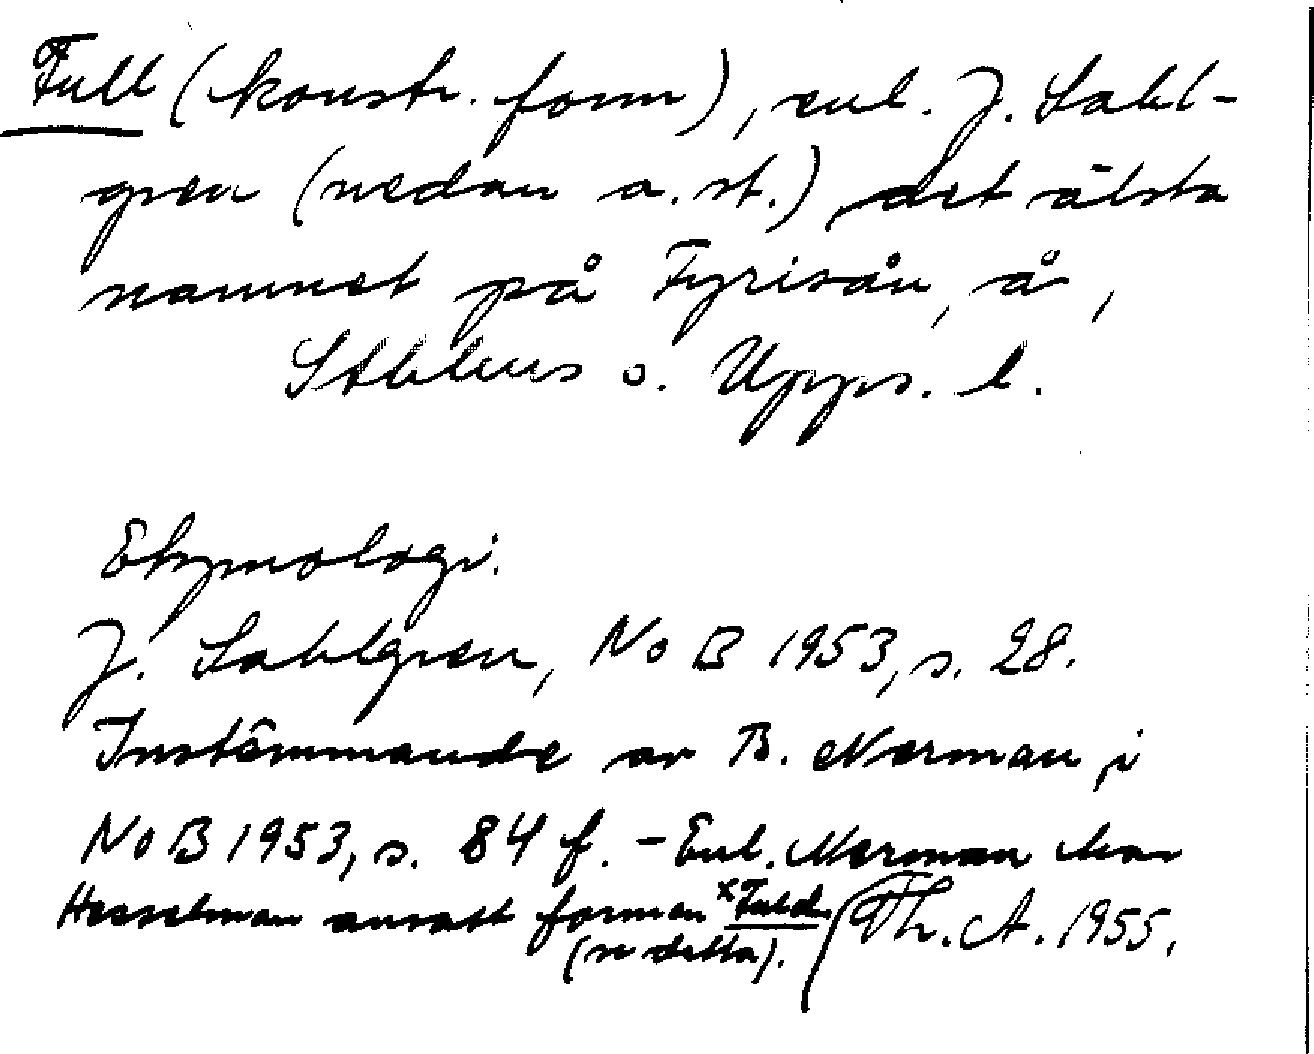 Full (konstr. form), enl. J. Sahl-
gren (nedan a. st.) det älsta
namnet på Fyrisån, å,
Sthlms o. Upps. l.
Etymologi.
J. Sahlgren, NoB 1953, s. 28.
Instämmande av B. Nerman, i
NoB 1953, s. 84 f. - Enl. Nerman har
Hesselman ansatt formen ˣFuld
(se detta). Th. A. 1955.